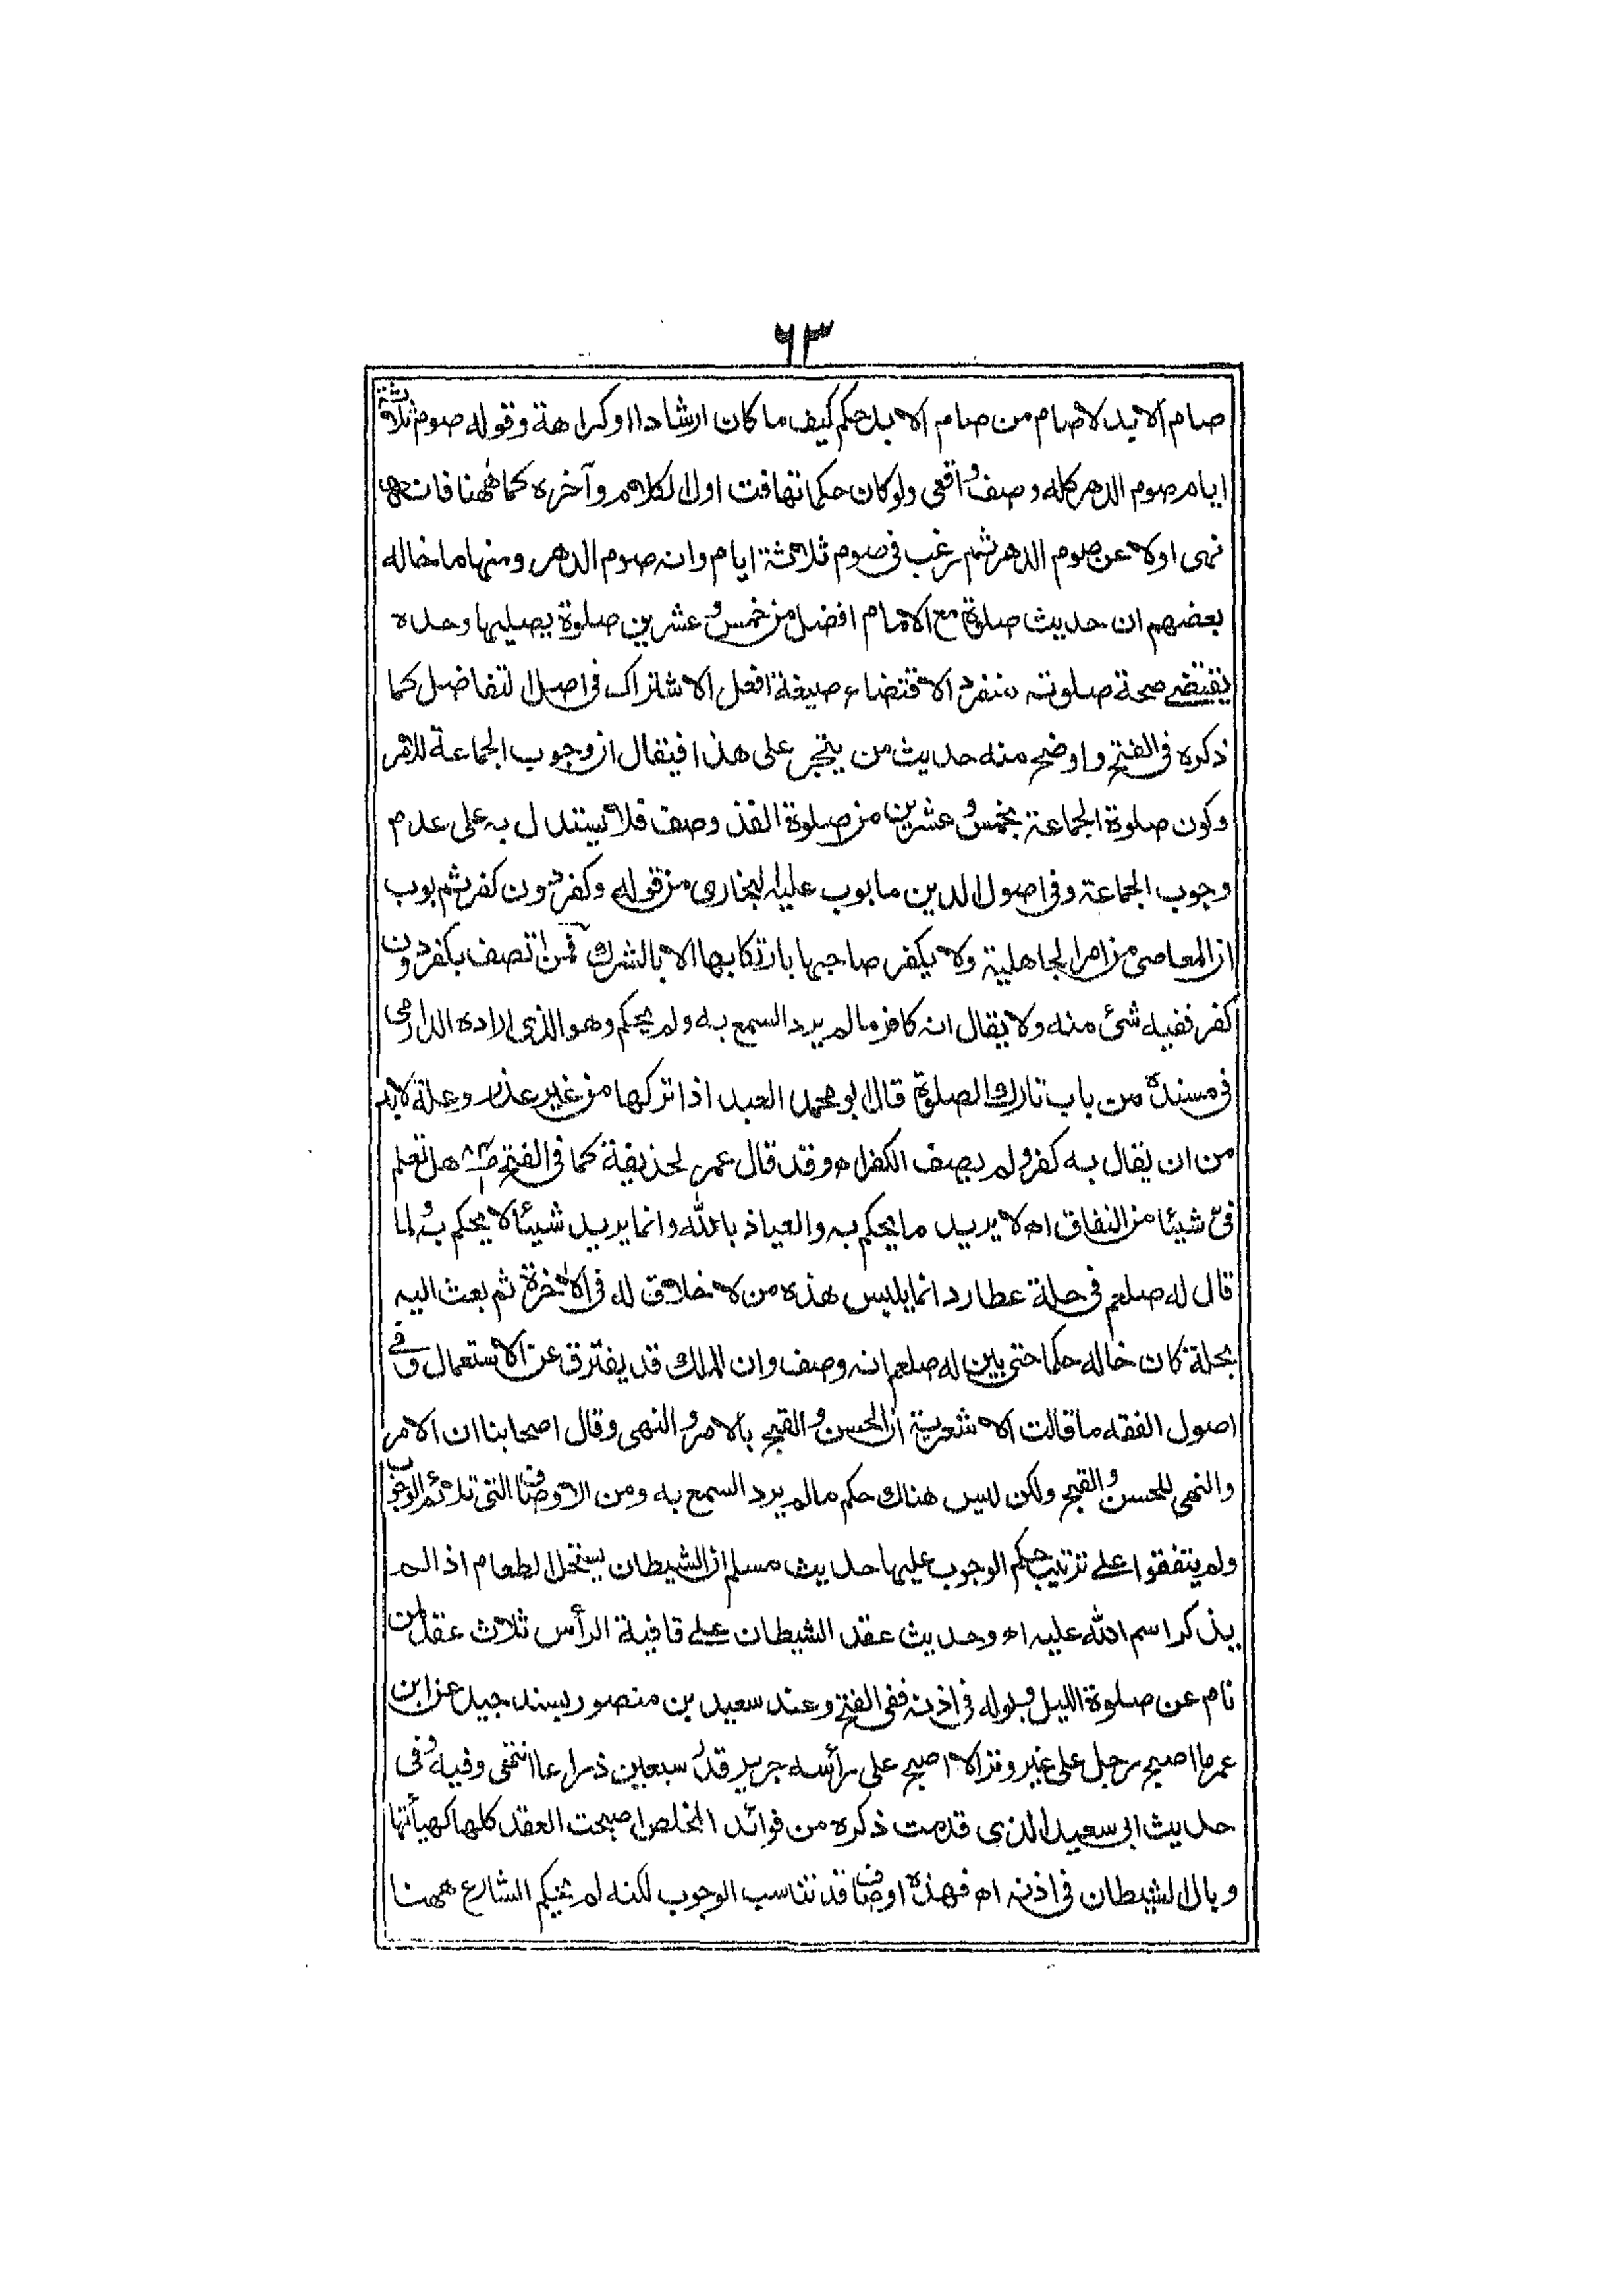 ٦٣
صام الابد لا صام من صام الابد حكم كيف ما كان ارشادا او كراهة وقوله صوم ثلاثة
ايام صوم الدهر كله وصف واقعى ولو كان حكما تهافت اول الكلام وآخره كما ههنا فانه
نهى اولا عن صوم الدهر ثم رغب فى صوم ثلاثة ايام وانه صوم الدهر ومنها ما خاله
بعضهم ان حديث صلوة مع الامام افضل من خمس وعشرين صلوة يصليها وحده
يقتضى صحة صلوته منفردا لاقتضاء صيغة افعل الاشتراك فى اصل التفاضل كما
ذكره فى الفتح واوضح منه حديث من يتجر على هذا فيقال ان وجوب الجماعة للامر
وكون صلوة الجماعة بخمس وعشرين من صلوة الفذ وصف فلا يستدل به على عدم
وجوب الجماعة وفى اصول الدين ما بوب عليه البخارى من قوله وكفر دون كفر ثم بوب
ان المعاصى من امر الجاهلية ولا يكفر صاحبها بارتكابها الا بالشرك فمن اتصف بكفر دون
كفر ففيه شئ منه ولا يقال انه كافر ما لم يرد السمع به ولم يحكم وهو الذى اراده الدارمى
فى مسنده من باب تارك الصلوة قال ابو محمد العبد اذا تركها من غير عذر وعلة لابد
من ان يقال به كفر ولم يصف الكفر اه وقد قال عمر لحذيفة كما فى الفتح هل تعلم
فىّ شيئا من النفاق اه لا يريد ما يحكم به والعياذ بالله وانما يريد شيئا لا يحكم به ولما
قال له صلعم فى حلة عطارد انما يلبس هذه من لا خلاق له فى الآخرة ثم بعث اليه
بحلة كان خاله حكما حتى بين له صلعم انه وصف وان الملك قد يفترق عن الاستعمال وفى
اصول الفقه ما قالت الاشعرية ان الحسن والقبح بالامر والنهى وقال اصحابنا ان الامر
والنهى للحسن والقبح ولكن ليس هناك حكم ما لم يرد السمع به ومن الاوصاف التى تلائم الوجوب
ولم يتفقوا على ترتيب حكم الوجوب عليها حديث مسلم ان الشيطان يستحل الطعام اذا لم
يذكر اسم الله عليه اه وحديث عقد الشيطان على قافية الرأس ثلاث عقد لمن
نام عن صلوة الليل وبوله فى اذنه ففى الفتح وعند سعيد بن منصور بسند جيد عن ابن
عمر ما اصبح رجل على غير وتر الا اصبح على رأسه جرير قدر سبعين ذراعا انتهى وفيه وفى
حديث ابى سعيد الذى قدمت ذكره من فوائد المخلص اصبحت العقد كلها كهيأتها
وبال الشيطان فى اذنه اه فهذه اوصاف قد تناسب الوجوب لكنه لم يحكم الشارع ههنا